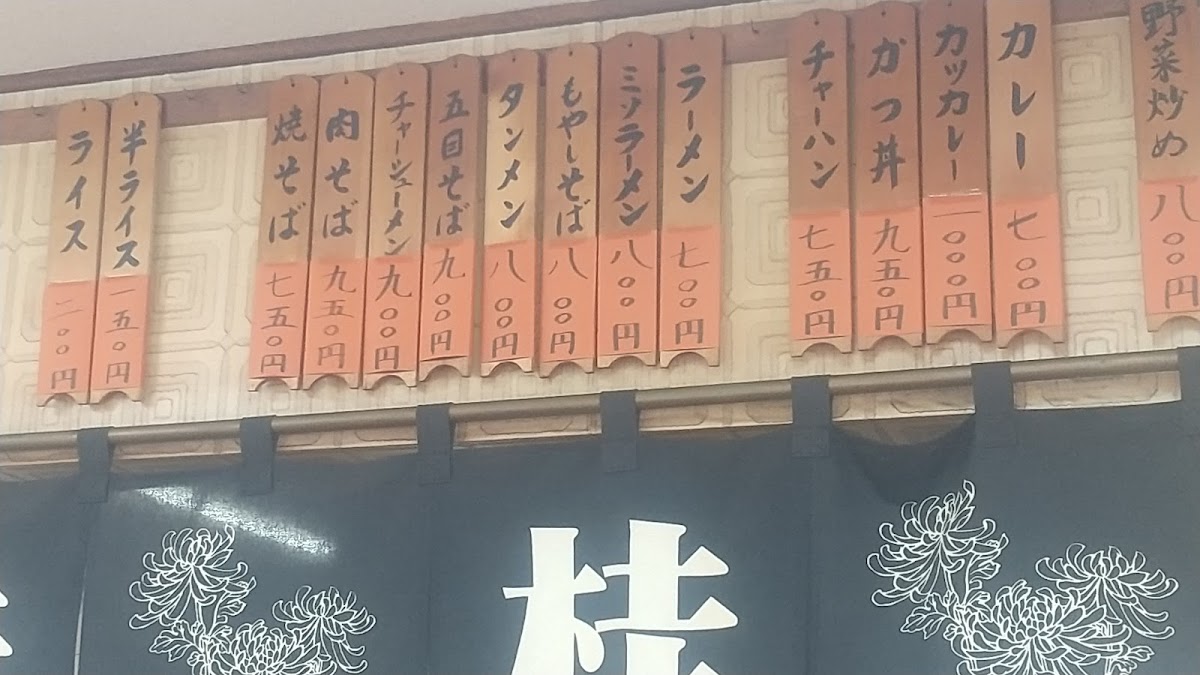 野菜炒め 八〇〇円
カレー 七〇〇円
カツカレー 一〇〇〇円
かつ丼 九五〇円
チャーハン 七五〇円
ラーメン 七〇〇円
ミソラーメン 八〇〇円
もやしそば 八〇〇円
タンメン 八〇〇円
五目そば 九〇〇円
チャーシューメン 九〇〇円
肉そば 九五〇円
焼そば 七五〇円
半ライス 一五〇円
ライス 二〇〇円